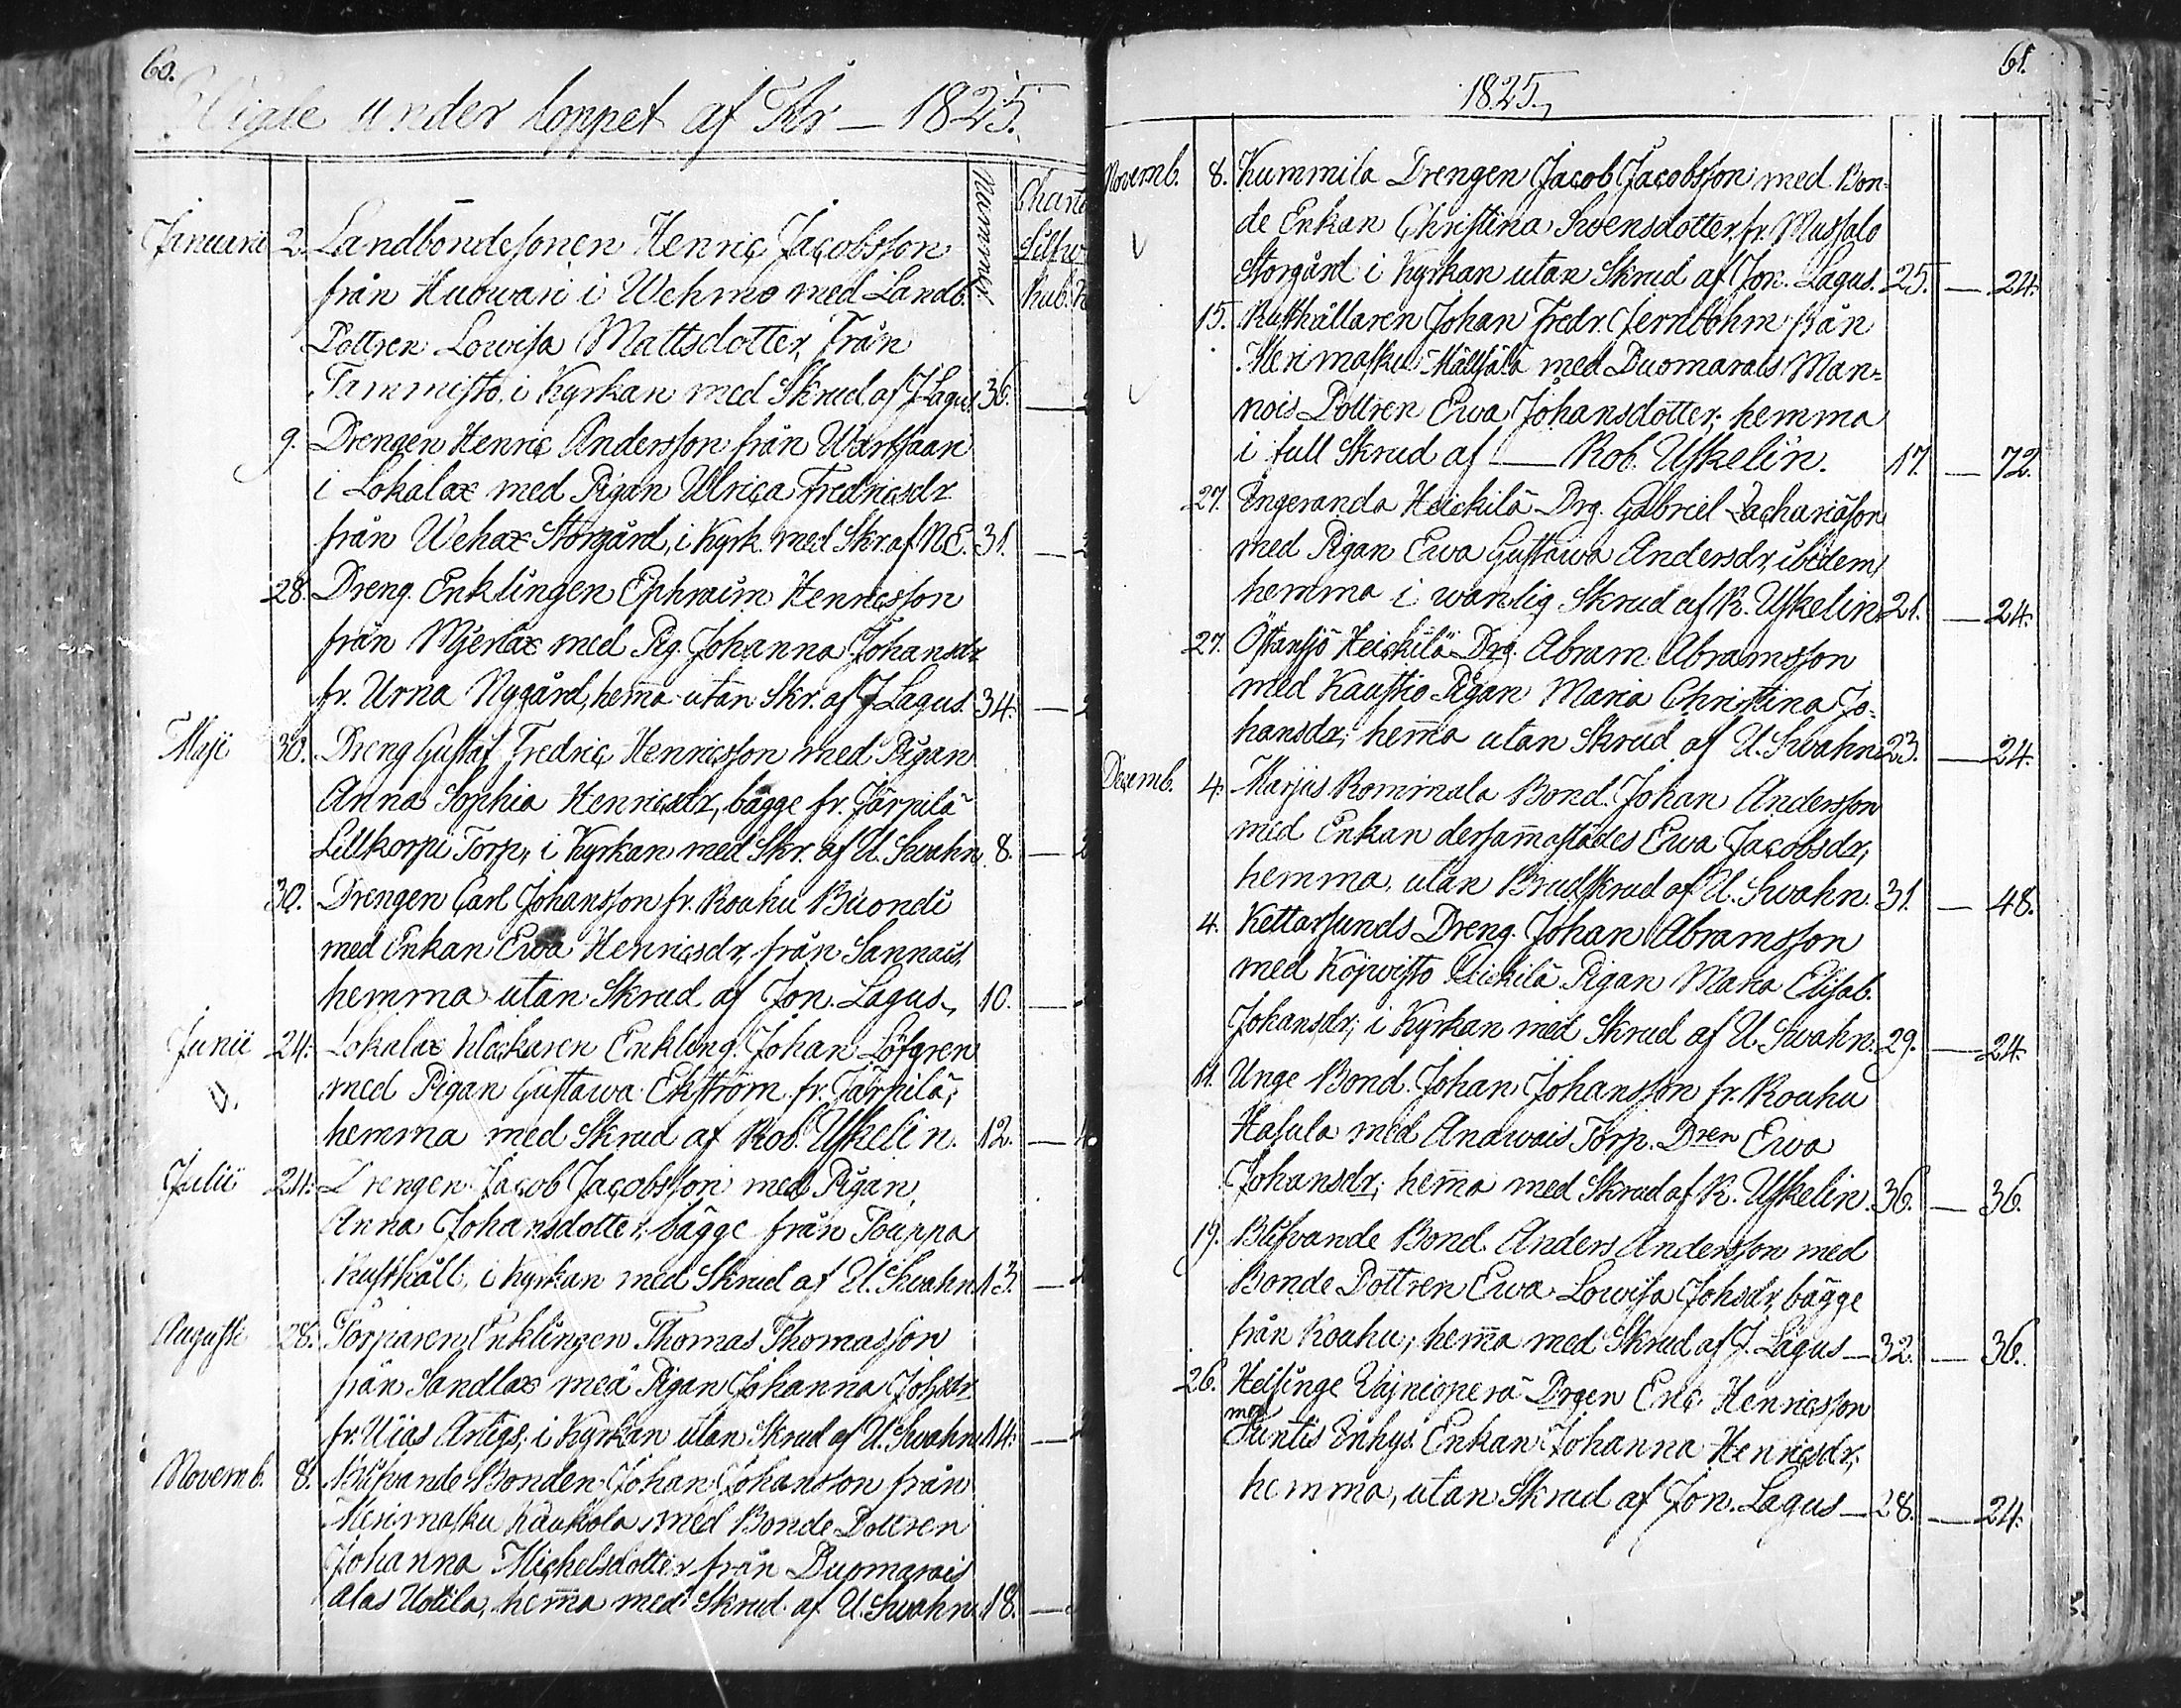 60.
Vigde under loppet af År — 1825.
Nummer.
Charta
Silfw
Rub.
Januarii 2. Landbondesonen Henric Jacobsson
från Huowari i Wehmo med Landb.
Dottren Lowisa Mattsdotter, från
Tammisto, i Kyrkan med Skrud af J Lagus 36. —
9. Drengen Henric Andersson från
i Lokalax med Pigan Ulrica Fredricsdr
från Wehax Storgård, i Kyrk. med Skr. af N.E. 31. —
28. Dreng. Enklingen Ephraim Henricsson
från Mjerlax med Pig. Johanna Johansdr
fr. Urna Nygård, hema utan Skr. af J Lagus. 34. —
Maji 30. Dreng Gustaf Fredric Henricsson med Pigan
Anna Sophia Henricsdr, bägge fr. Järpilä
Lillkorpi Torp, i Kyrkan med Skr. af U. Swahn. 8. —
30. Drengen Carl Johansson fr. Roahu Buondi
med Enkan Ewa Henricsdr, från Sannais,
hemma utan Skrud af Jon. Lagus. 10. —
Junii 24. Lokalax Klockaren Enkling. Johan Löfgren
V. med Pigan Gustawa Ekström fr. Järpilä;
hemma med Skrud af Rob. Uskelin. 12. —
Julii 24. Drengen Jacob Jacobsson med Pigan
Anna Johansdotter, bägge från Puppa
Rusthåll, i Kyrkan med Skrud af U. Swahn. 13. —
Augusti 28. Torparen Enklingen Thomas Thomasson
från Sandlax med Pigan Johanna Johsdr
fr. Uias Artigs, i Kyrkan utan Skrud af U. Swahn 14. —
Novemb. 8. Blifvande Bonden Johan Johansson från
Merimasku Kaukola med Bonde Dottren
Johanna Michelsdotter från Duomarais
Alas Uotila, hema med Skrud af U. Swahn. 18. —
61.
1825.
Novemb. 8. Kummila Drengen Jacob Jacobsson med Bon-
de Enkan Christina Swensdotter fr. Mussalo
V Storgård i Kyrkan utan Skrud af Jon. Lagus. 25. — 24.
15. Rusthållaren Johan Fredr. Jernbohm från
Merimasku med Duomarais Man=
V nois Dottren Ewa Johansdotter; hemma
i full Skrud af — Rob. Uskelin. 17. — 72.
27. Engeranda Heickilä Drg. Gabriel Zachariäson
med Pigan Ewa Gustawa Andersdr, ibidem,
hemma i wanlig Skrud af R. Uskelin. 21. — 24.
27. Östansjö Heickilä Drg. Abram Abramsson
med Kaustio Pigan Maria Christina Jo-
hansdr; hema utan Skrud af U. Swahn. 23. — 24.
Decemb. 4. Marjais Rommala Bond. Johan Andersson
med Enkan dersamastädes Ewa Jacobsdr,
hemma, utan Brudskrud af U. Swahn. 31. — 48.
4. Kettarsunds Dreng. Johan Abramsson
med Kojwisto Heickilä Pigan Maria Elisab.
Johansdr; i Kyrkan med Skrud af U. Swahn. 29. — 24.
11. Unge Bond. Johan Johansson fr. Roahu
Hasula med Anawais Torp. Dren Ewa
Johansdr; hema med Skrud af R. Uskelin. 36. — 36.
19. Blifvande Bond. Anders Andersson med
Bonde Dottren Ewa Lowisa Johsdr, bägge
från Roahu; hema med Skrud af J. Lagus — 32. — 36.
26. Helsinge Wajnionperä Drgen Eric Henricsson
med
Juntis Inhys Enkan Johanna Henricsdr;
hemma, utan Skrud af Jon. Lagus — 28. — 24.